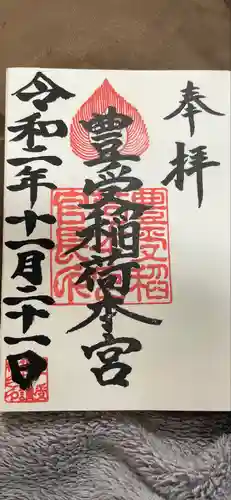 奉拝
豊受稲荷本宮
令和二年十一月二十一日